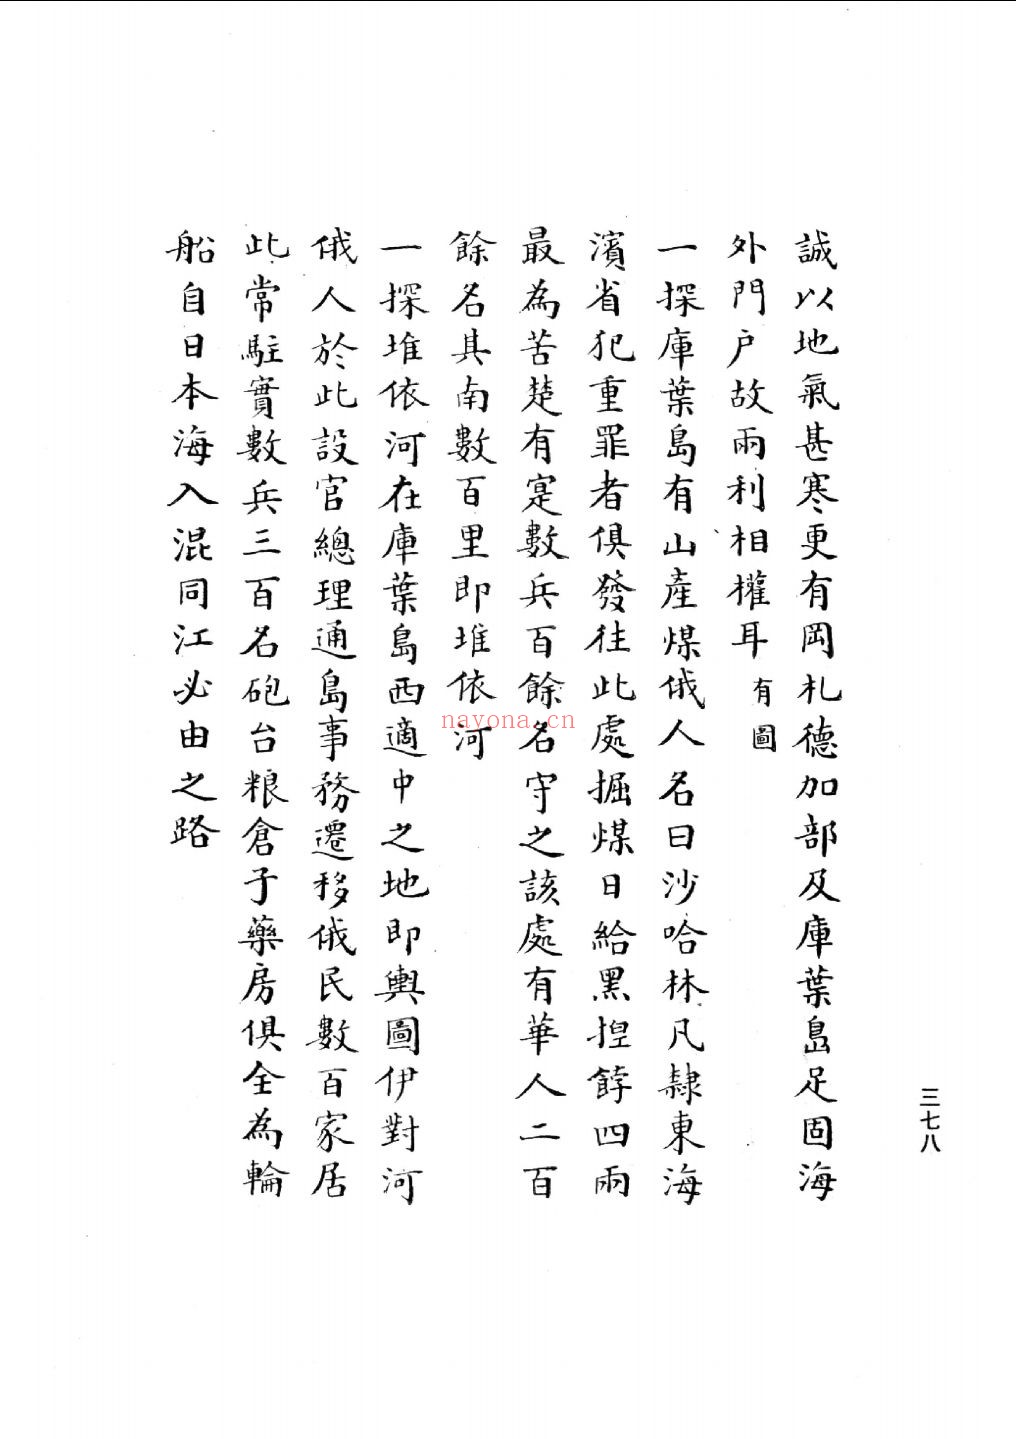 誠以地氣甚寒更有岡札德加部及庫葉島足固海
外門户故兩利相權耳有圖
一探庫葉島有山產煤俄人名曰沙哈林凡隸東海
濱省犯重罪者俱發往此處掘煤日給黑揑餑四兩
最為苦楚有寔數兵百餘名守之該處有華人二百
餘名其南數百里即堆依河
一探堆依河在庫葉島西適中之地即輿圖伊對河
俄人於此設官總理通島事務遷移俄民數百家居
此常駐實數兵三百名砲台粮倉子藥房俱全為輪
船自日本海入混同江必由之路
三七八
nayona.cn